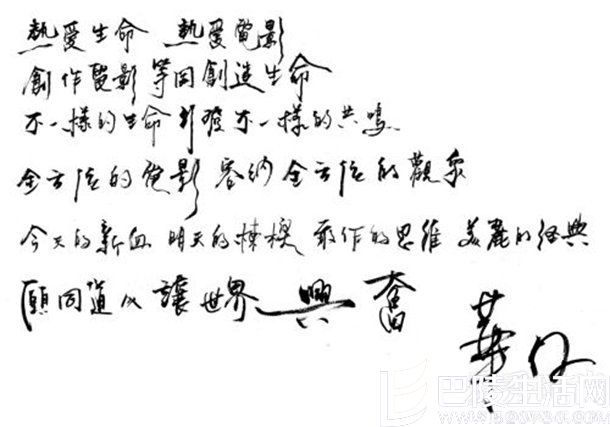 熱愛生命 熱愛電影
創作電影等同創造生命
不一樣的生命引發不一樣的共鳴
全方位的電影容納全方位的觀眾
今天的新血 明天的棟樑 敢作的思維 美麗的經典
願同道人 讓世界興奮
華仔
巴陵生活网